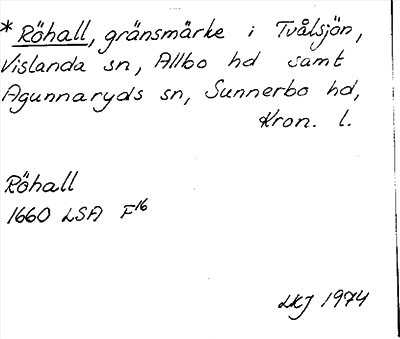 *Röhall, gränsmärke i Tvålsjön,
Vislanda sn, Allbo hd samt
Agunnaryds sn, Sunnerbo hd,
Kron. l.
Röhall
1660 LSA F16
LKJ 1974